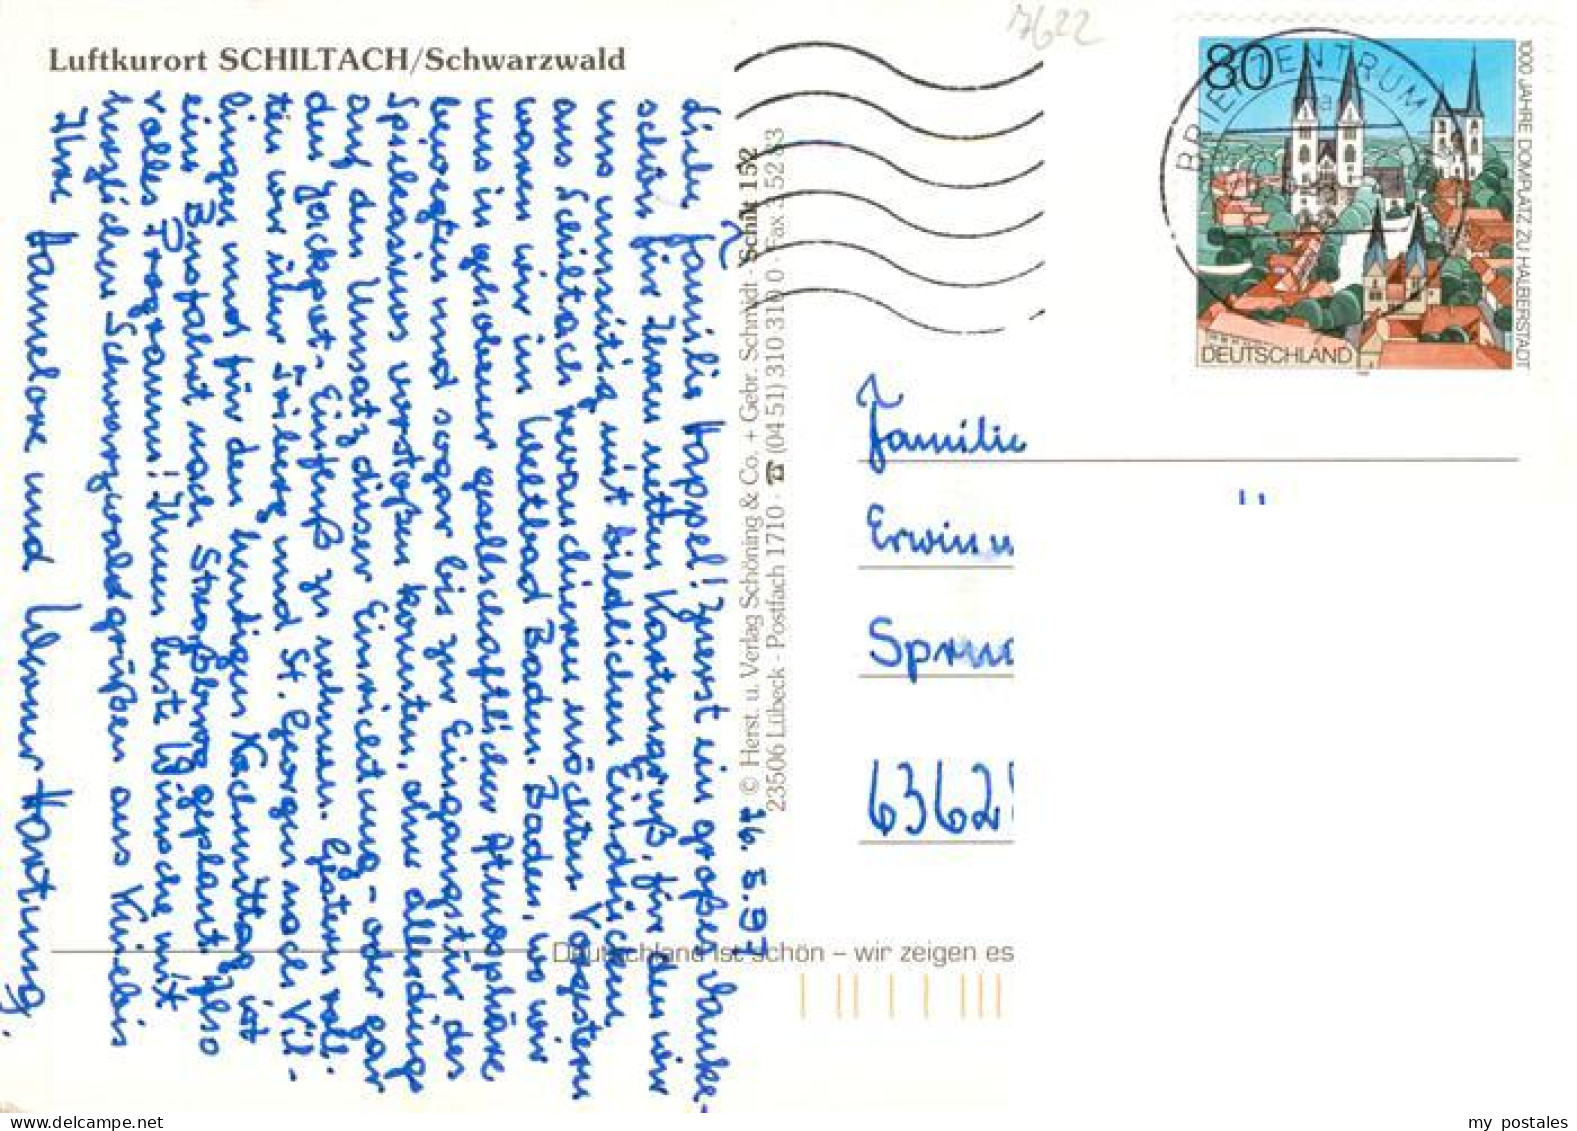 Luftkurort SCHILTACH/Schwarzwald
16.5.97
Liebe Familie Happel! Zuerst ein großes Danke-
schön für Ihren netten Kartengruß, für den wir
uns umseitig mit bildlichen Eindrücken
aus Schiltach revanchieren möchten. Vorgestern
waren wir im Weltbad Baden-Baden, wo wir
uns in gehobener gesellschaftlicher Atmosphäre
bewegten und sogar bis zur Eingangstür des
Spielkasinos vorstoßen konnten, ohne allerdings
auf den Umsatz dieser Einrichtung - oder gar
den Jackpot - Einfluß zu nehmen. Gestern roll-
ten wir über Triberg und St. Georgen nach Vil-
lingen und für den heutigen Nachmittag ist
eine Busfahrt nach Straßburg geplant. Also
volles Programm! Ihnen beste Wünsche mit
herzlichen Schwarzwaldgrüßen aus Kniebis
Ihre Hannelore und Werner Hartung.
© Herst. u. Verlag Schöning & Co. + Gebr. Schmidt · Schilt 152
23506 Lübeck · Postfach 1710 · ☎ (04 51) 310 310 0 · Fax 3 52 83
Deutschland ist schön – wir zeigen es
7622
80
1000 JAHRE DOMPLATZ ZU HALBERSTADT
DEUTSCHLAND
BRIEFZENTRUM
Familie
Erwin
63628
my postales